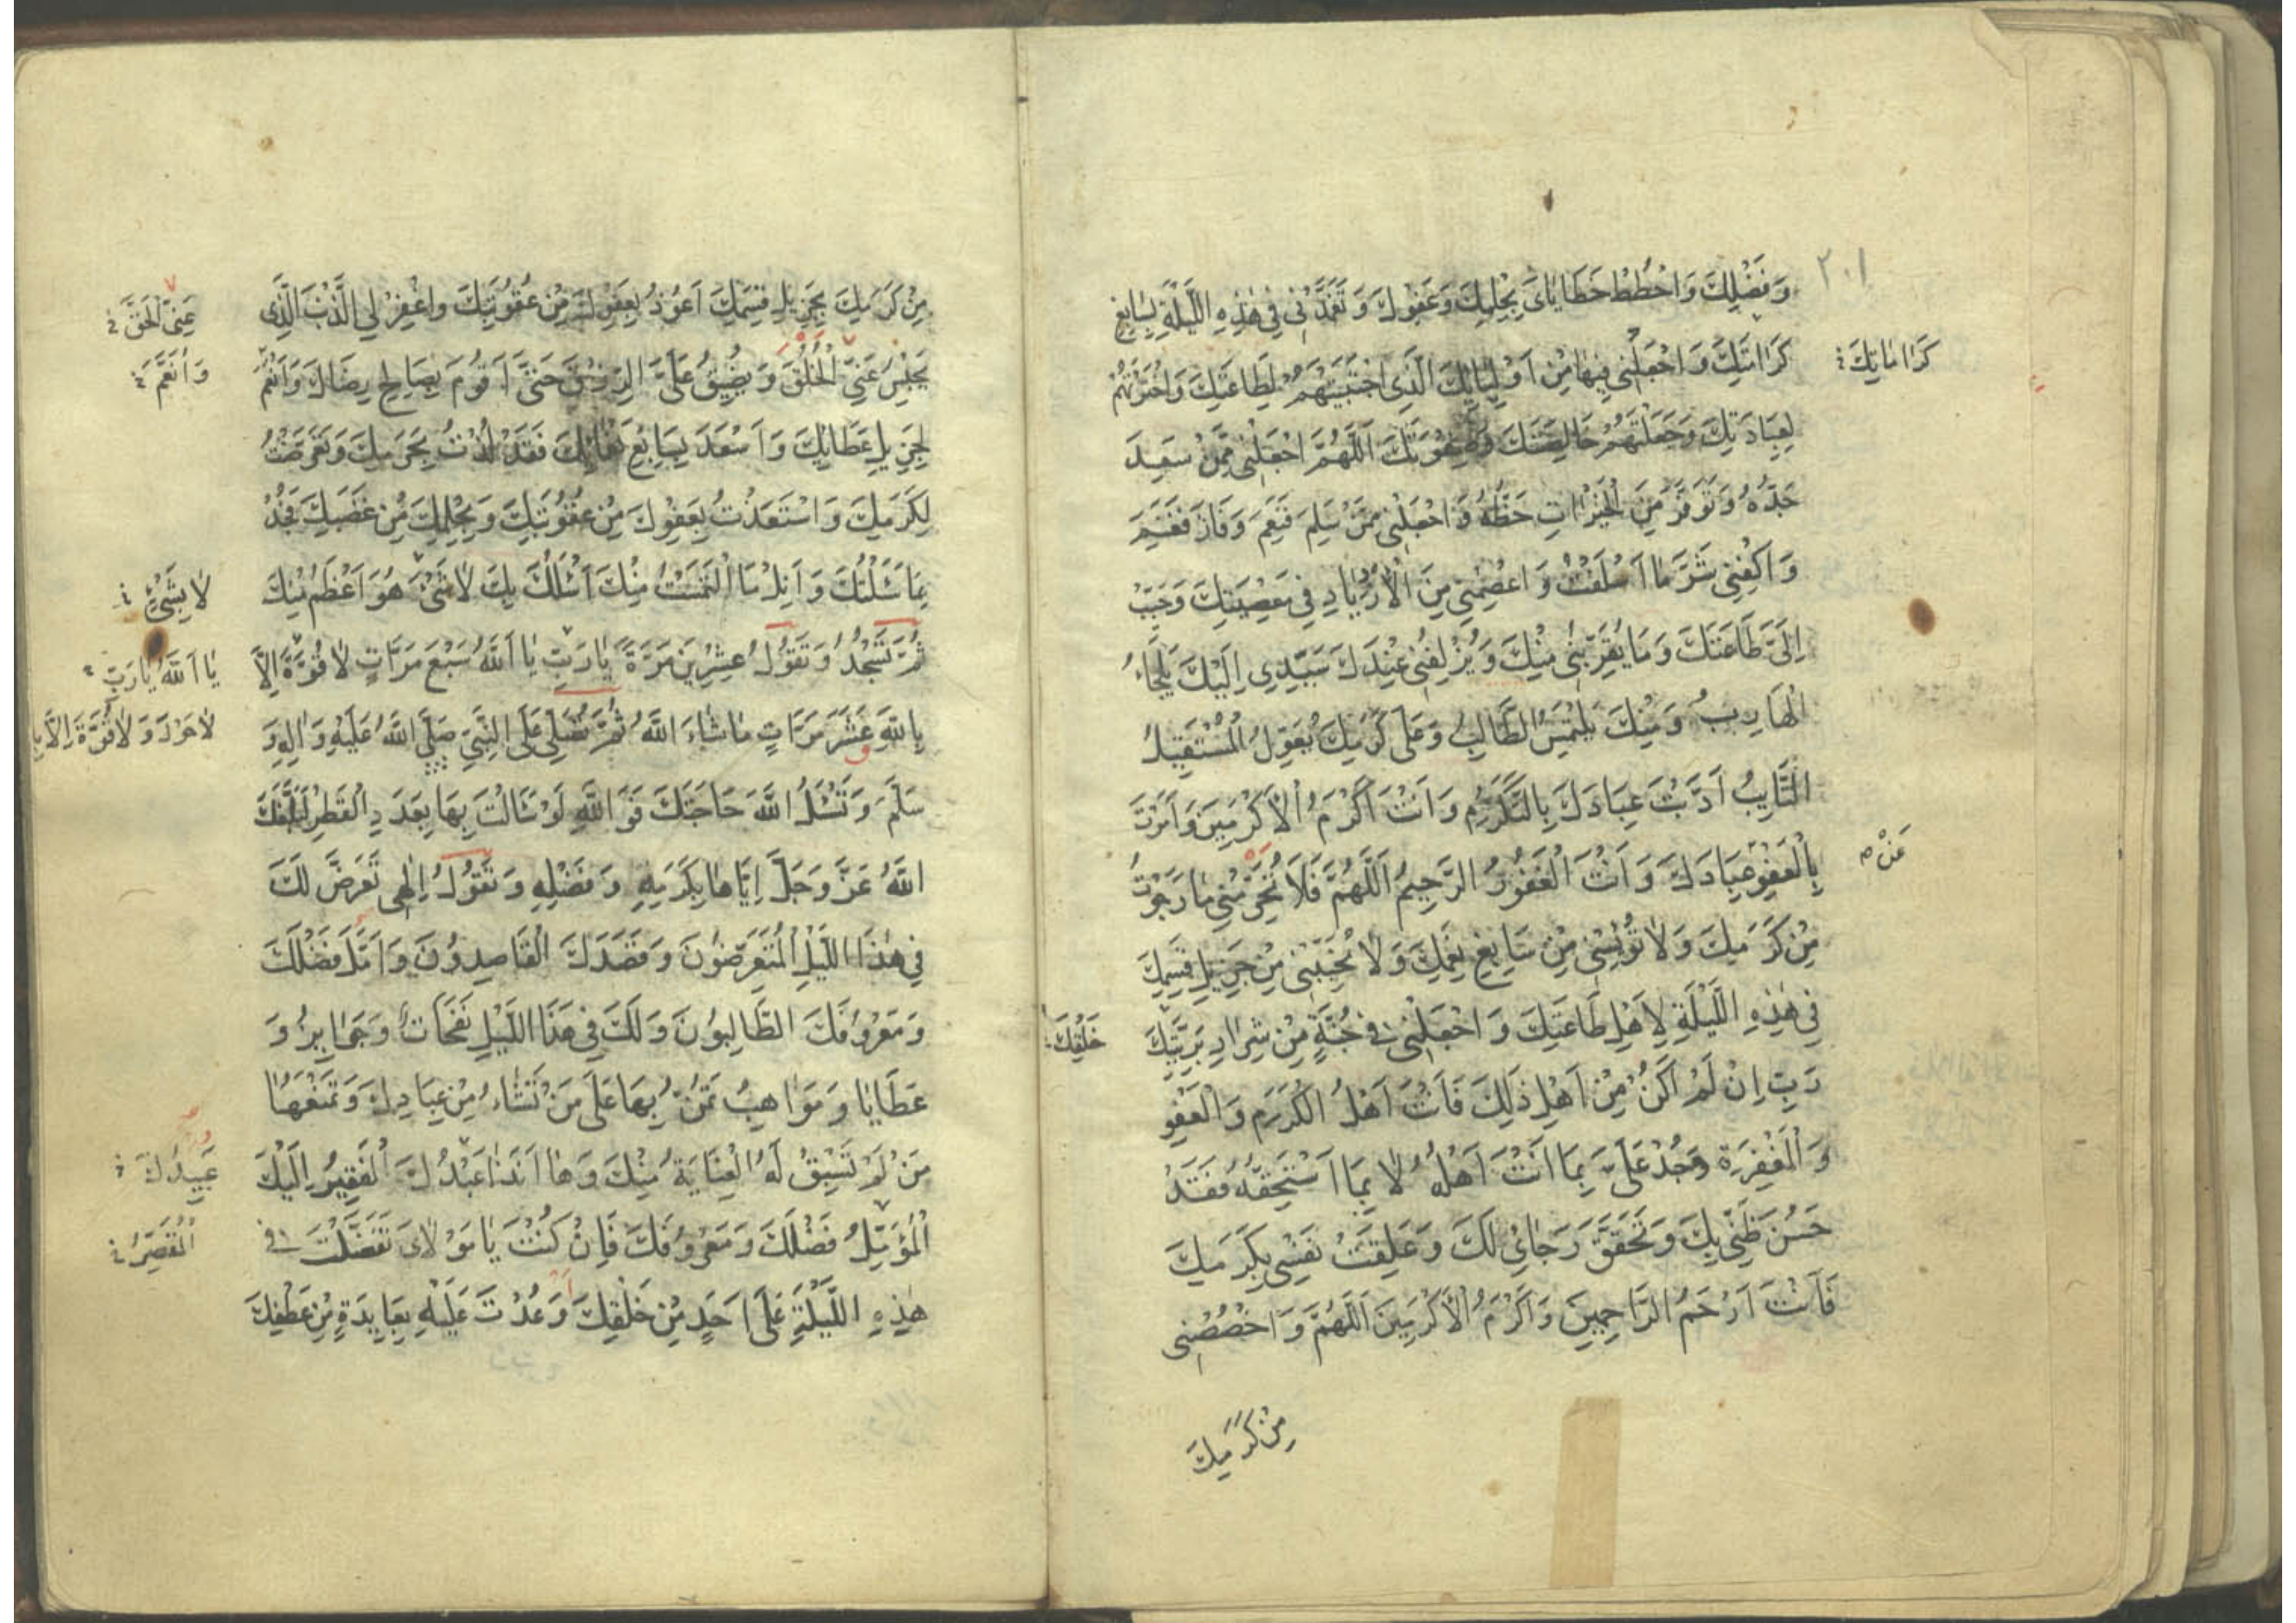 ٢٠١
وَفَضْلِكَ وَاحْطُطْ خَطَايَايَ بِحِلْمِكَ وَعَفْوِكَ وَتَغَمَّدْنِي فِي هٰذِهِ اللَّيْلَةِ بِسَابِغِ
كَرَامَتِكَ وَاجْعَلْنِي فِيهَا مِنْ اَوْلِيَائِكَ الَّذِي اجْتَبَيْتَهُمْ لِطَاعَتِكَ وَاخْتَرْتَهُمْ
كَرَامَاتِكَ
لِعِبَادَتِكَ وَجَعَلْتَهُمْ خَالِصَتَكَ وَصِفْوَتَكَ اَللّٰهُمَّ اجْعَلْنِي مِمَّنْ سَعِدَ
جَدُّهُ وَتَوَفَّرَ مِنَ الْخَيْرَاتِ حَظُّهُ وَاجْعَلْنِي مِمَّنْ سَلِمَ فَنَعِمَ وَفَازَ فَغَنِمَ
وَاكْفِنِي شَرَّ مَا اَسْلَفْتُ وَاعْصِمْنِي مِنَ الْاِزْدِيَادِ فِي مَعْصِيَتِكَ وَحَبِّبْ
اِلَيَّ طَاعَتَكَ وَمَا يُقَرِّبُنِي مِنْكَ وَيُزْلِفُنِي عِنْدَكَ سَيِّدِي اِلَيْكَ يَلْجَاُ
الْهَارِبُ وَمِنْكَ يَلْتَمِسُ الطَّالِبُ وَعَلَى كَرَمِكَ يُعَوِّلُ الْمُسْتَقِيلُ
التَّايِبُ اَدَّبْتَ عِبَادَكَ بِالتَّكَرُّمِ وَاَنْتَ اَكْرَمُ الْاَكْرَمِينَ وَاَمَرْتَ
بِالْعَفْوِ عِبَادَكَ وَاَنْتَ الْغَفُورُ الرَّحِيمُ اَللّٰهُمَّ فَلَا تَحْرِمْنِي مَا رَجَوْتُ
عَنْ
مِنْ كَرَمِكَ وَلَا تُؤْيِسْنِي مِنْ سَابِغِ نِعَمِكَ وَلَا تُخَيِّبْنِي مِنْ جَزِيلِ قِسَمِكَ
فِي هٰذِهِ اللَّيْلَةِ لِاَهْلِ طَاعَتِكَ وَاجْعَلْنِي فِي جُنَّةٍ مِنْ شِرَارِ بَرِيَّتِكَ
خَلْقِكَ
رَبِّ اِنْ لَمْ اَكُنْ مِنْ اَهْلِ ذٰلِكَ فَاَنْتَ اَهْلُ الْكَرَمِ وَالْعَفْوِ
وَالْمَغْفِرَةِ وَجُدْ عَلَيَّ بِمَا اَنْتَ اَهْلُهُ لَا بِمَا اَسْتَحِقُّهُ فَقَدْ
حَسُنَ ظَنِّي بِكَ وَتَحَقَّقَ رَجَائِي لَكَ وَعَلِقَتْ نَفْسِي بِكَرَمِكَ
فَاَنْتَ اَرْحَمُ الرَّاحِمِينَ وَاَكْرَمُ الْاَكْرَمِينَ اَللّٰهُمَّ وَاخْصُصْنِي
مِنْ كَرَمِكَ
مِنْ كَرَمِكَ بِجَزِيلِ قِسَمِكَ اَعُوذُ بِعَفْوِكَ مِنْ عُقُوبَتِكَ وَاغْفِرْ لِي الذَّنْبَ الَّذِي
عَنِّي الْحَقَّ
يَحْبِسُ عَنِّي الْخُلُقَ وَيُضَيِّقُ عَلَيَّ الرِّزْقَ حَتَّى اَقُومَ بِصَالِحِ رِضَاكَ وَاَنْعَمَ
وَاَنْعَمَ
بِجَزِيلِ عَطَائِكَ وَاَسْعَدَ بِسَابِغِ نَعْمَائِكَ فَقَدْ لُذْتُ بِحَرَمِكَ وَتَعَرَّضْتُ
لِكَرَمِكَ وَاسْتَعَذْتُ بِعَفْوِكَ مِنْ عُقُوبَتِكَ وَبِحِلْمِكَ مِنْ غَضَبِكَ فَجُدْ
بِمَا سَئَلْتُكَ وَاَنِلْ مَا الْتَمَسْتُ مِنْكَ اَسْئَلُكَ بِكَ لَا شَيْءَ هُوَ اَعْظَمُ مِنْكَ
لَا بِشَيْءٍ
ثُمَّ تَسْجُدُ وَتَقُولُ عِشْرِينَ مَرَّةً يَا رَبِّ يَا اَللّٰهُ سَبْعَ مَرَّاتٍ لَا قُوَّةَ اِلَّا
يَا اَللّٰهُ يَا رَبِّ
بِاللّٰهِ عَشْرَ مَرَّاتٍ مَا شَاءَ اللّٰهُ ثُمَّ تُصَلِّي عَلَى النَّبِيِّ صَلَّى اللّٰهُ عَلَيْهِ وَاٰلِهِ وَ
لَا حَوْلَ وَلَا قُوَّةَ اِلَّا بِا
سَلَّمَ وَتَسْئَلُ اللّٰهَ حَاجَتَكَ فَوَاللّٰهِ لَوْ سَاَلْتَ بِهَا بِعَدَدِ الْقَطْرِ لَبَلَّغَكَ
اللّٰهُ عَزَّ وَجَلَّ اِيَّاهَا بِكَرَمِهِ وَفَضْلِهِ وَتَقُولُ اِلٰهِي تَعَرَّضَ لَكَ
فِي هٰذَا اللَّيْلِ الْمُتَعَرِّضُونَ وَقَصَدَكَ الْقَاصِدُونَ وَاَمَّلَ فَضْلَكَ
وَمَعْرُوفَكَ الطَّالِبُونَ وَلَكَ فِي هٰذَا اللَّيْلِ نَفَحَاتٌ وَجَوَايِزُ وَ
عَطَايَا وَمَوَاهِبُ تَمُنُّ بِهَا عَلَى مَنْ تَشَاءُ مِنْ عِبَادِكَ وَتَمْنَعُهَا
مَنْ لَمْ تَسْبِقْ لَهُ الْعِنَايَةُ مِنْكَ وَهَا اَنَا ذَا عَبْدُكَ الْفَقِيرُ اِلَيْكَ
عُبَيْدُكَ
الْمُؤَمِّلُ فَضْلَكَ وَمَعْرُوفَكَ فَاِنْ كُنْتَ يَا مَوْلَايَ تَفَضَّلْتَ فِي
الْمُقَصِّرُ
هٰذِهِ اللَّيْلَةِ عَلَى اَحَدٍ مِنْ خَلْقِكَ وَعُدْتَ عَلَيْهِ بِعَايِدَةٍ مِنْ عَطْفِكَ